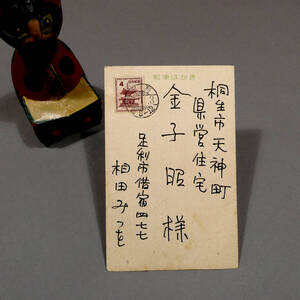 郵便はがき
4
桐生市天神町
県営住宅
金子昭様
足利市借宿四七七
相田みつを